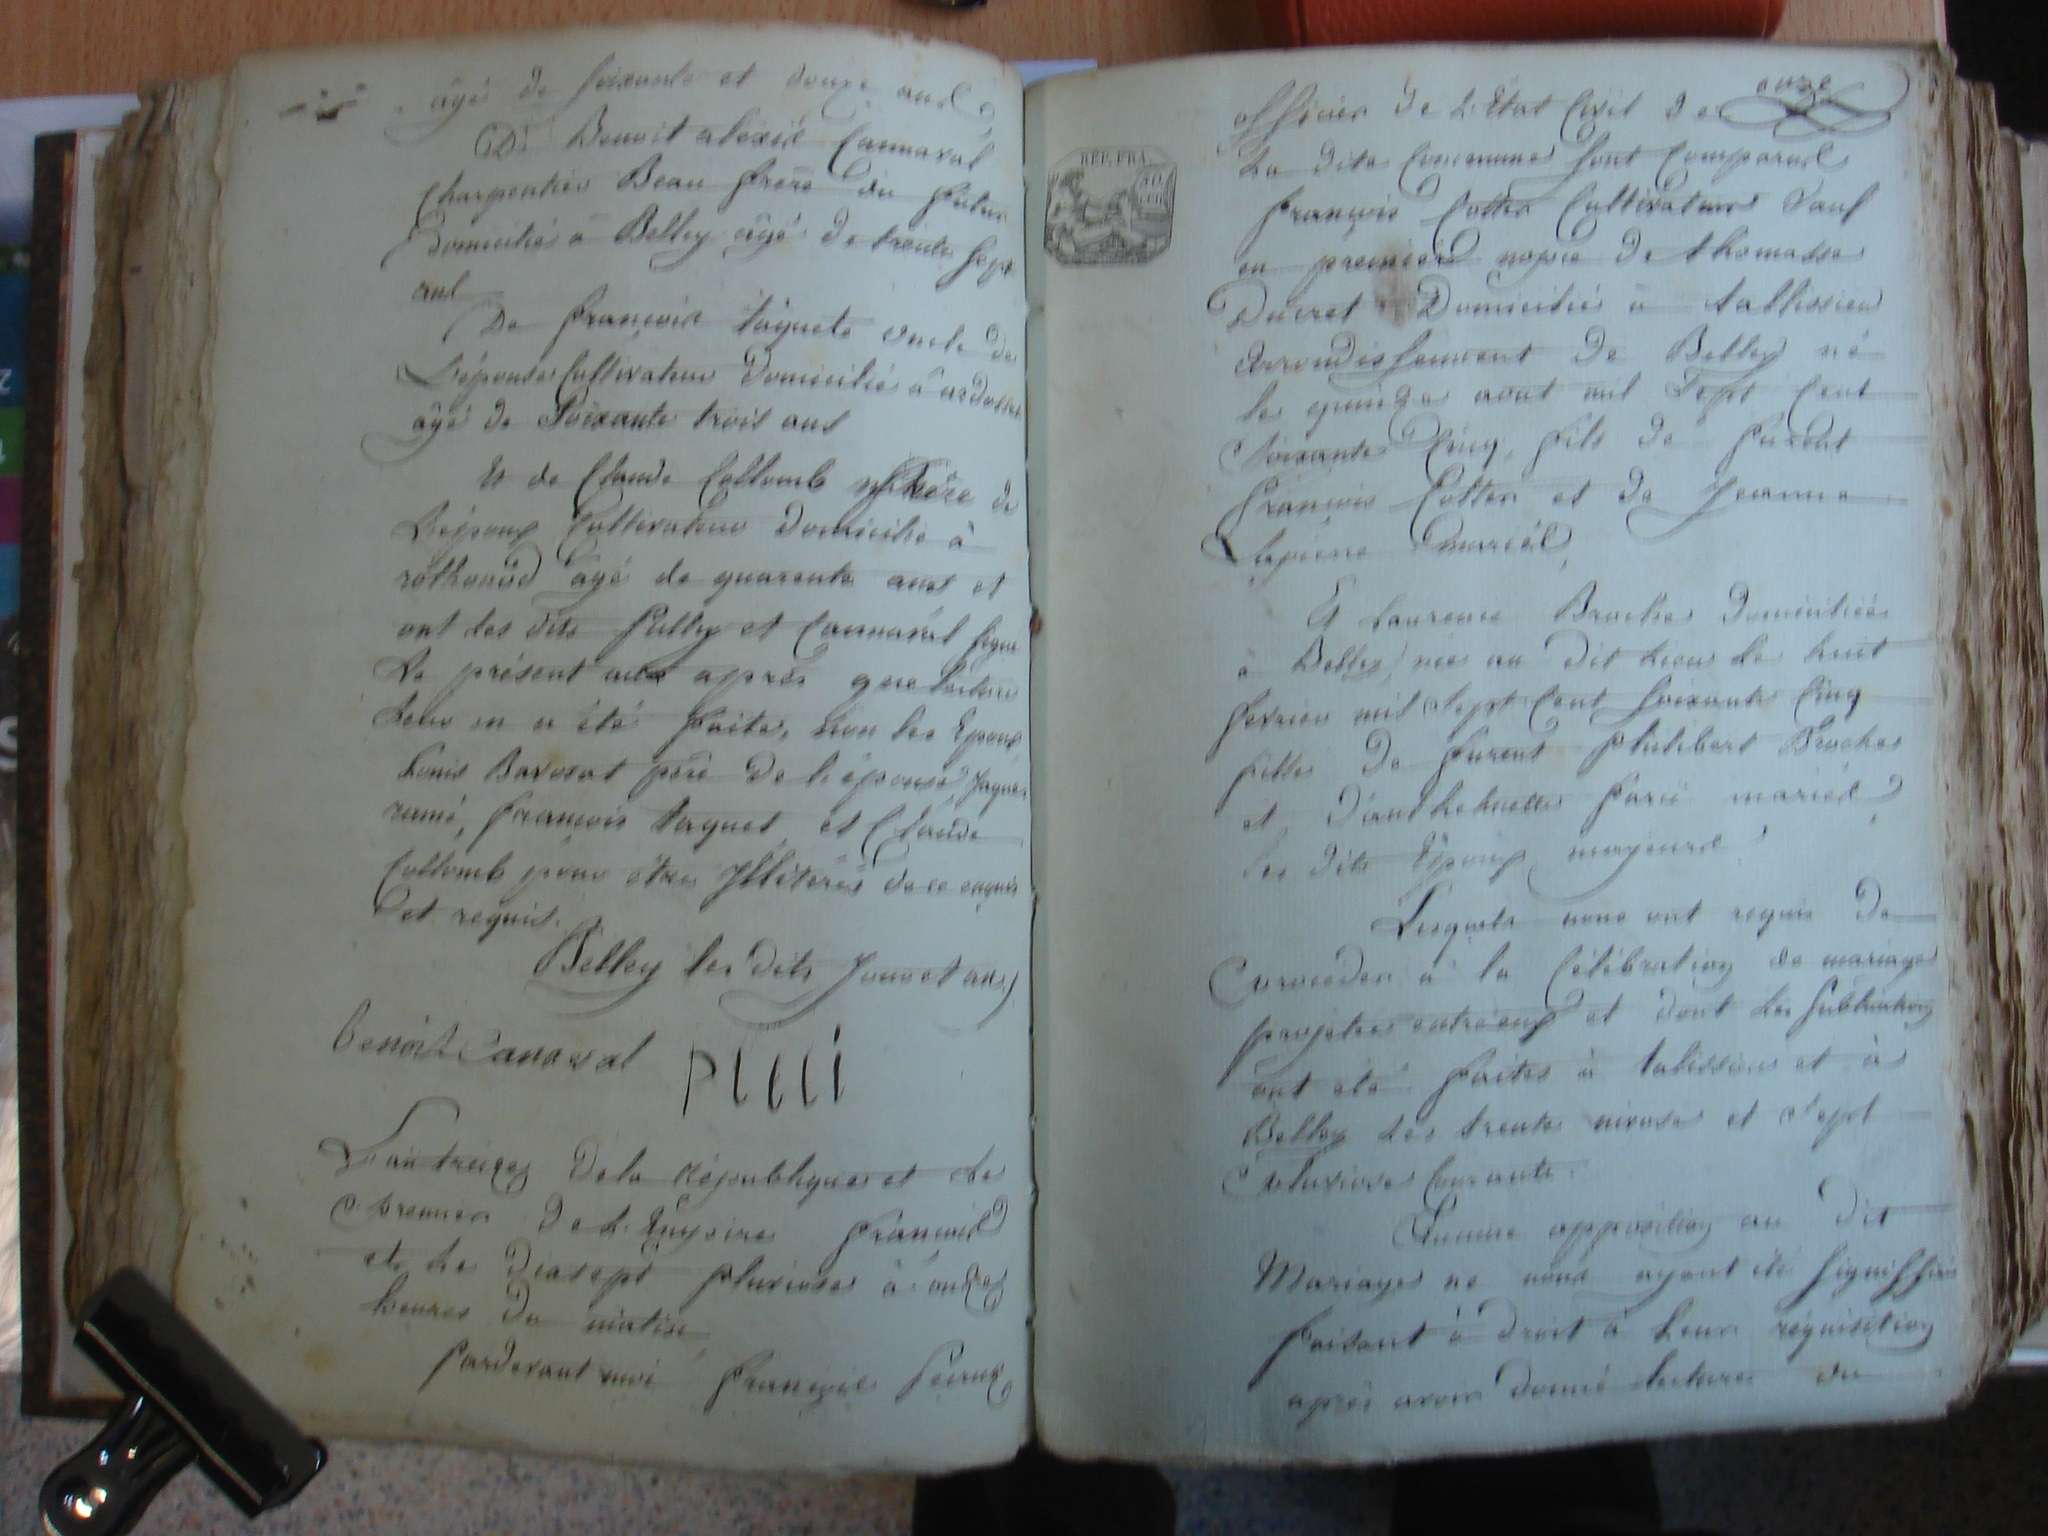 âgé de soixante et douze ans
De Benoit alexis Cannaval
Charpentier Beau frere du futur
Domicilié à Belley âgé de trente sept
ans
De françois taquete oncle de
L'épouse Cultivateur Domicilié à
âgé de Soixante trois ans
Et de Claude Collomb de
L'époux Cultivateur Domicilié à
rothonod âgé de quarante ans et
ont les dits et Cannaval signé
Le présent acte après que lecture
Leur en a été faite, non les Epoux
Louis Bavosat pere de l'épouse
françois taquet et Claude
Collomb pour être Illiterés de ce enquis
et requis.
Belley les dits Jour et an
benoit Canaval
L'an treize de la République et le
premier de L'Empire françois
et le Dixsept pluviose à onze
heures du matin
Pardevant moi françois
onze
officier de L'Etat Civil de
La dite Commune sont Comparus
françois Cottin Cultivateur Vauf
en premiers nopce de thomasse
Ducret Domicilié à tallissieu
arrondissement de Belley né
le quinze aout mil Sept Cent
Soixante Cinq, fils de furent
françois Cottin et de Jeanne
Lapierre mariés,
Et Laurence Broches Domiciliée
à Belley née au dit Lieu le huit
fevrier mil Sept Cent soixante Cinq
fille de furent philibert Broches
et D'anthelmette mariés
les dits Epoux majeurs
Lesquels nous ont requis de
proceder à la Célébration de mariage
projettes entr'eux et dont les publications
ont été faites à talissieu et à
Belley Les trente nivose et Sept
Pluviose Courante.
Aucune opposition au dit
Mariage ne nous ayant été signiffiée
faisant à droit à Leur réquisition
après avoir donné lecture du
REP. FRA.